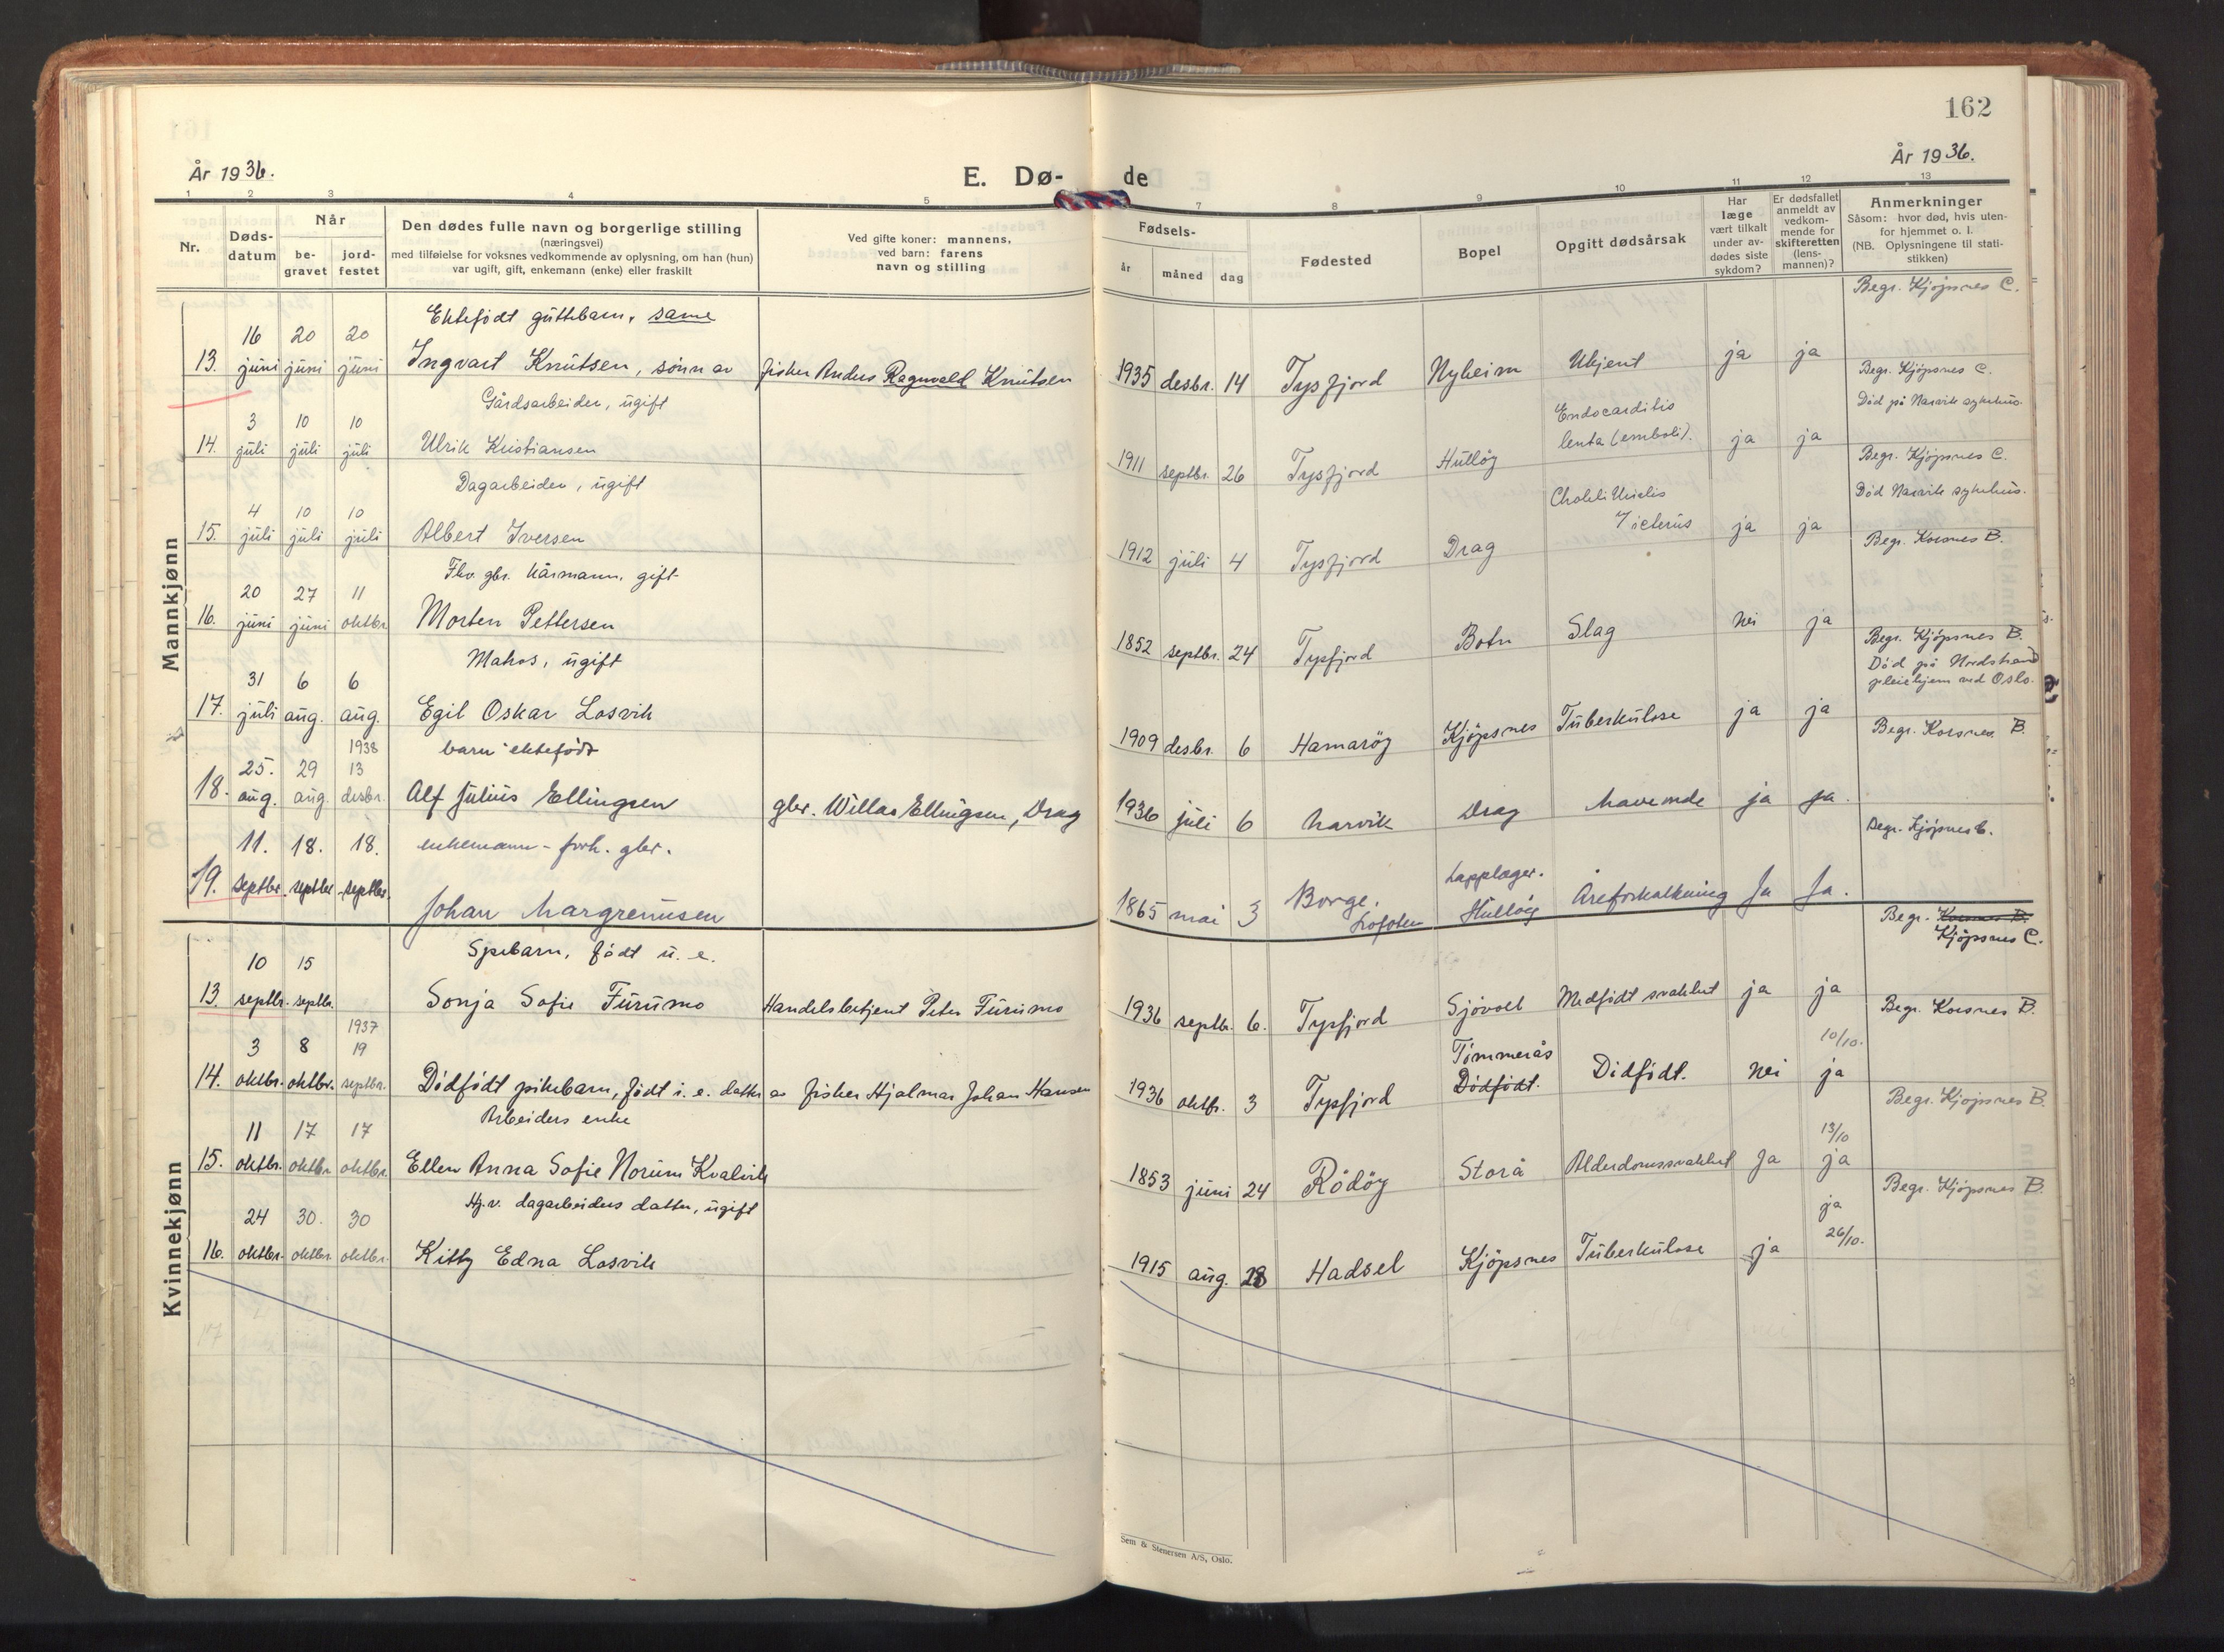 162
År 1936.
E. Dø-
de
År 1936.
1 2 3 4 5 7 8 9 10 11 12 13
Nr.
Døds-
datum
Når
be-
gravet
jord-
festet
Den dødes fulle navn og borgerlige stilling
(næringsvei)
med tilføielse for voksnes vedkommende av oplysning, om han (hun)
var ugift, gift, enkemann (enke) eller fraskilt
Ved gifte koner: mannens,
ved barn: farens
navn og stilling
Fødsels-
år måned dag
Fødested
Bopel
Opgitt dødsårsak
Har
læge
vært tilkalt
under av-
dødes siste
sykdom?
Er dødsfallet
anmeldt av
vedkom-
mende for
skifteretten
(lens-
mannen)?
Anmerkninger
Såsom: hvor død, hvis uten-
for hjemmet o. l.
(NB. Oplysningene til stati-
stikken)
Mannkjønn
Ektefødt guttebarn, same
Begr. Kjøpsnes C.
16 20 20
13. juni juni juni Ingvart Knutsen, sønn av fisker Anders Ragnvald Knutsen 1935 desbr. 14 Tysfjord Nyheim Ukjent ja ja
Gårdsarbeider, ugift
Endocarditis
Begr. Kjøpsnes C.
Død på Narvik sykehus.
3 10 10
14. juli juli juli Ulrik Kristiansen 1911 septbr. 26 Tysfjord Hulløy lenta (emboli). ja ja
Dagarbeider, ugift
Begr. Kjøpsnes C.
Død Narvik sykehus.
4 10 10
15. juli juli juli Albert Iversen 1912 juli 4 Tysfjord Drag Icterus ja ja
Fhv. gbr. kårmann, gift
Begr. Korsnes B.
20 27 11
16. juni juni oktbr Morten Pettersen 1852 septbr. 24 Tysfjord Botn Slag nei ja
Matros, ugift
Begr. Kjøpsnes B.
Død på Nordstrand
pleiehjem ved Oslo.
31 6 6
17. juli aug. aug. Egil Oskar Losvik 1909 desbr. 6 Hamarøy Kjøpsnes Tuberkulose ja ja
1938
barn ektefødt
Begr. Korsnes B.
25. 29 13
18. aug. aug. desbr. Alf Julius Ellingsen gbr. Willas Ellingsen, Drag 1936 juli 6 Narvik Drag ja ja.
enkemann - forh. gbr.
Begr. Kjøpsnes C.
11. 18. 18.
Lapplæger.
19. septbr. septbr. septbr. Johan Margrenusen 1865 mai 3 Borge, Lofoten Hulløy Åreforkalkning Ja Ja.
Kvinnekjønn
Spebarn, født u. e.
Begr. Korsnes B.
Kjøpsnes C.
10 15
13. septbr. septbr. Sonja Sofie Furumo Handelsbetjent Peter Furumo 1936 septbr. 6. Tysfjord Sjøvoll Medfødt svakhet ja ja
1937
Begr. Korsnes B.
3 8 19
Tømmerås
10/10.
14. oktbr. oktbr. septbr. Dødfødt pikebarn, født i. e. datter av fisker Hjalmar Johan Hansen 1936 oktbr. 3 Tysfjord Dødfødt. Dødfødt. nei ja
Arbeiders enke
Begr. Kjøpsnes B.
11 17 17
13/10
15. oktbr. oktbr. oktbr. Ellen Anna Sofie Norum Kvalvik 1853 juni 24 Rødøy Storå Alderdomssvakhet Ja ja
Hj.v. dagarbeiders datter, ugift
Begr. Kjøpsnes B.
24 30. 30
ja
16. oktbr. oktbr. oktbr. Kitty Edna Losvik 1915 aug. 28 Hadsel Kjøpsnes Tuberkulose ja 26/10.
17
Sem & Stenersen A/S, Oslo.